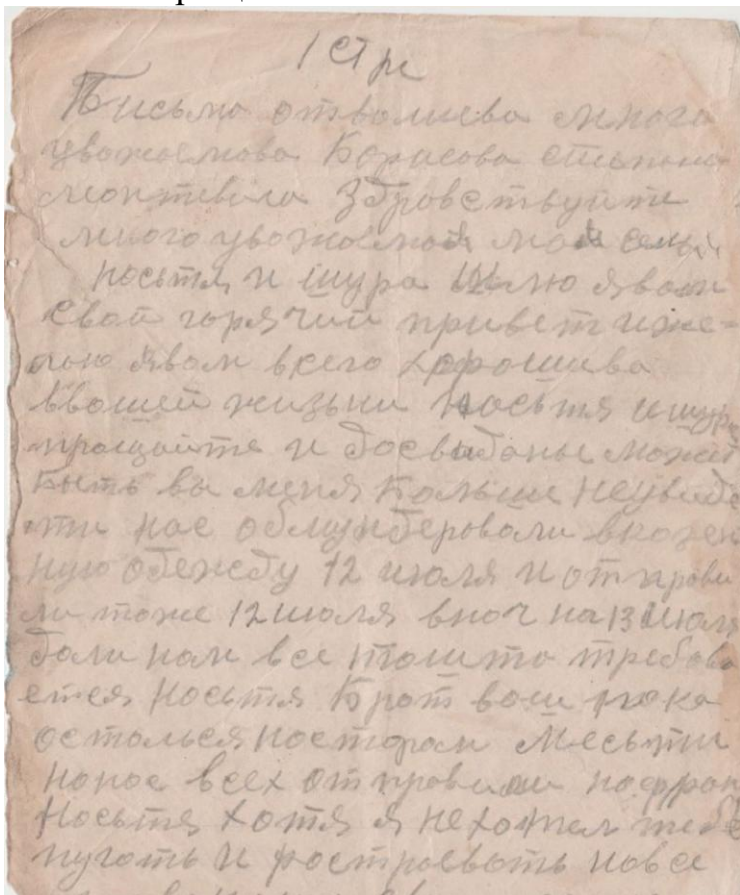 1 стр
Письмо от волиева многа
уважоемова Борисова степана
Здравствуйти
много уважоемой моей семьи
Носьтя и шура Шлю я вам
свой горячий привет и же-
лою я вам всего хорошива
в вошей жизьни Носьтя и шура
прощойте и досвиданье можит
быть вы меня больше неувиде
ти нас облмундеровали в козен
ную обежду 12 июля и отправи
ли тоже 12 июля вноч на 13 июля
дали нам все што требова
ется Носьтя брат ваш пока
остолься на стором месьти
нонас всех отправили нафрон
Носьтя хотя я нехотел тебя
пугать и ростроевоть новсе